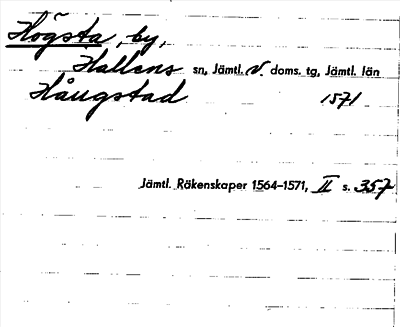 Högsta, by,
Hallens sn, Jämtl. V. doms. tg, Jämtl. län
Håugstad 1571
Jämtl. Räkenskaper 1564-1571, II s. 357